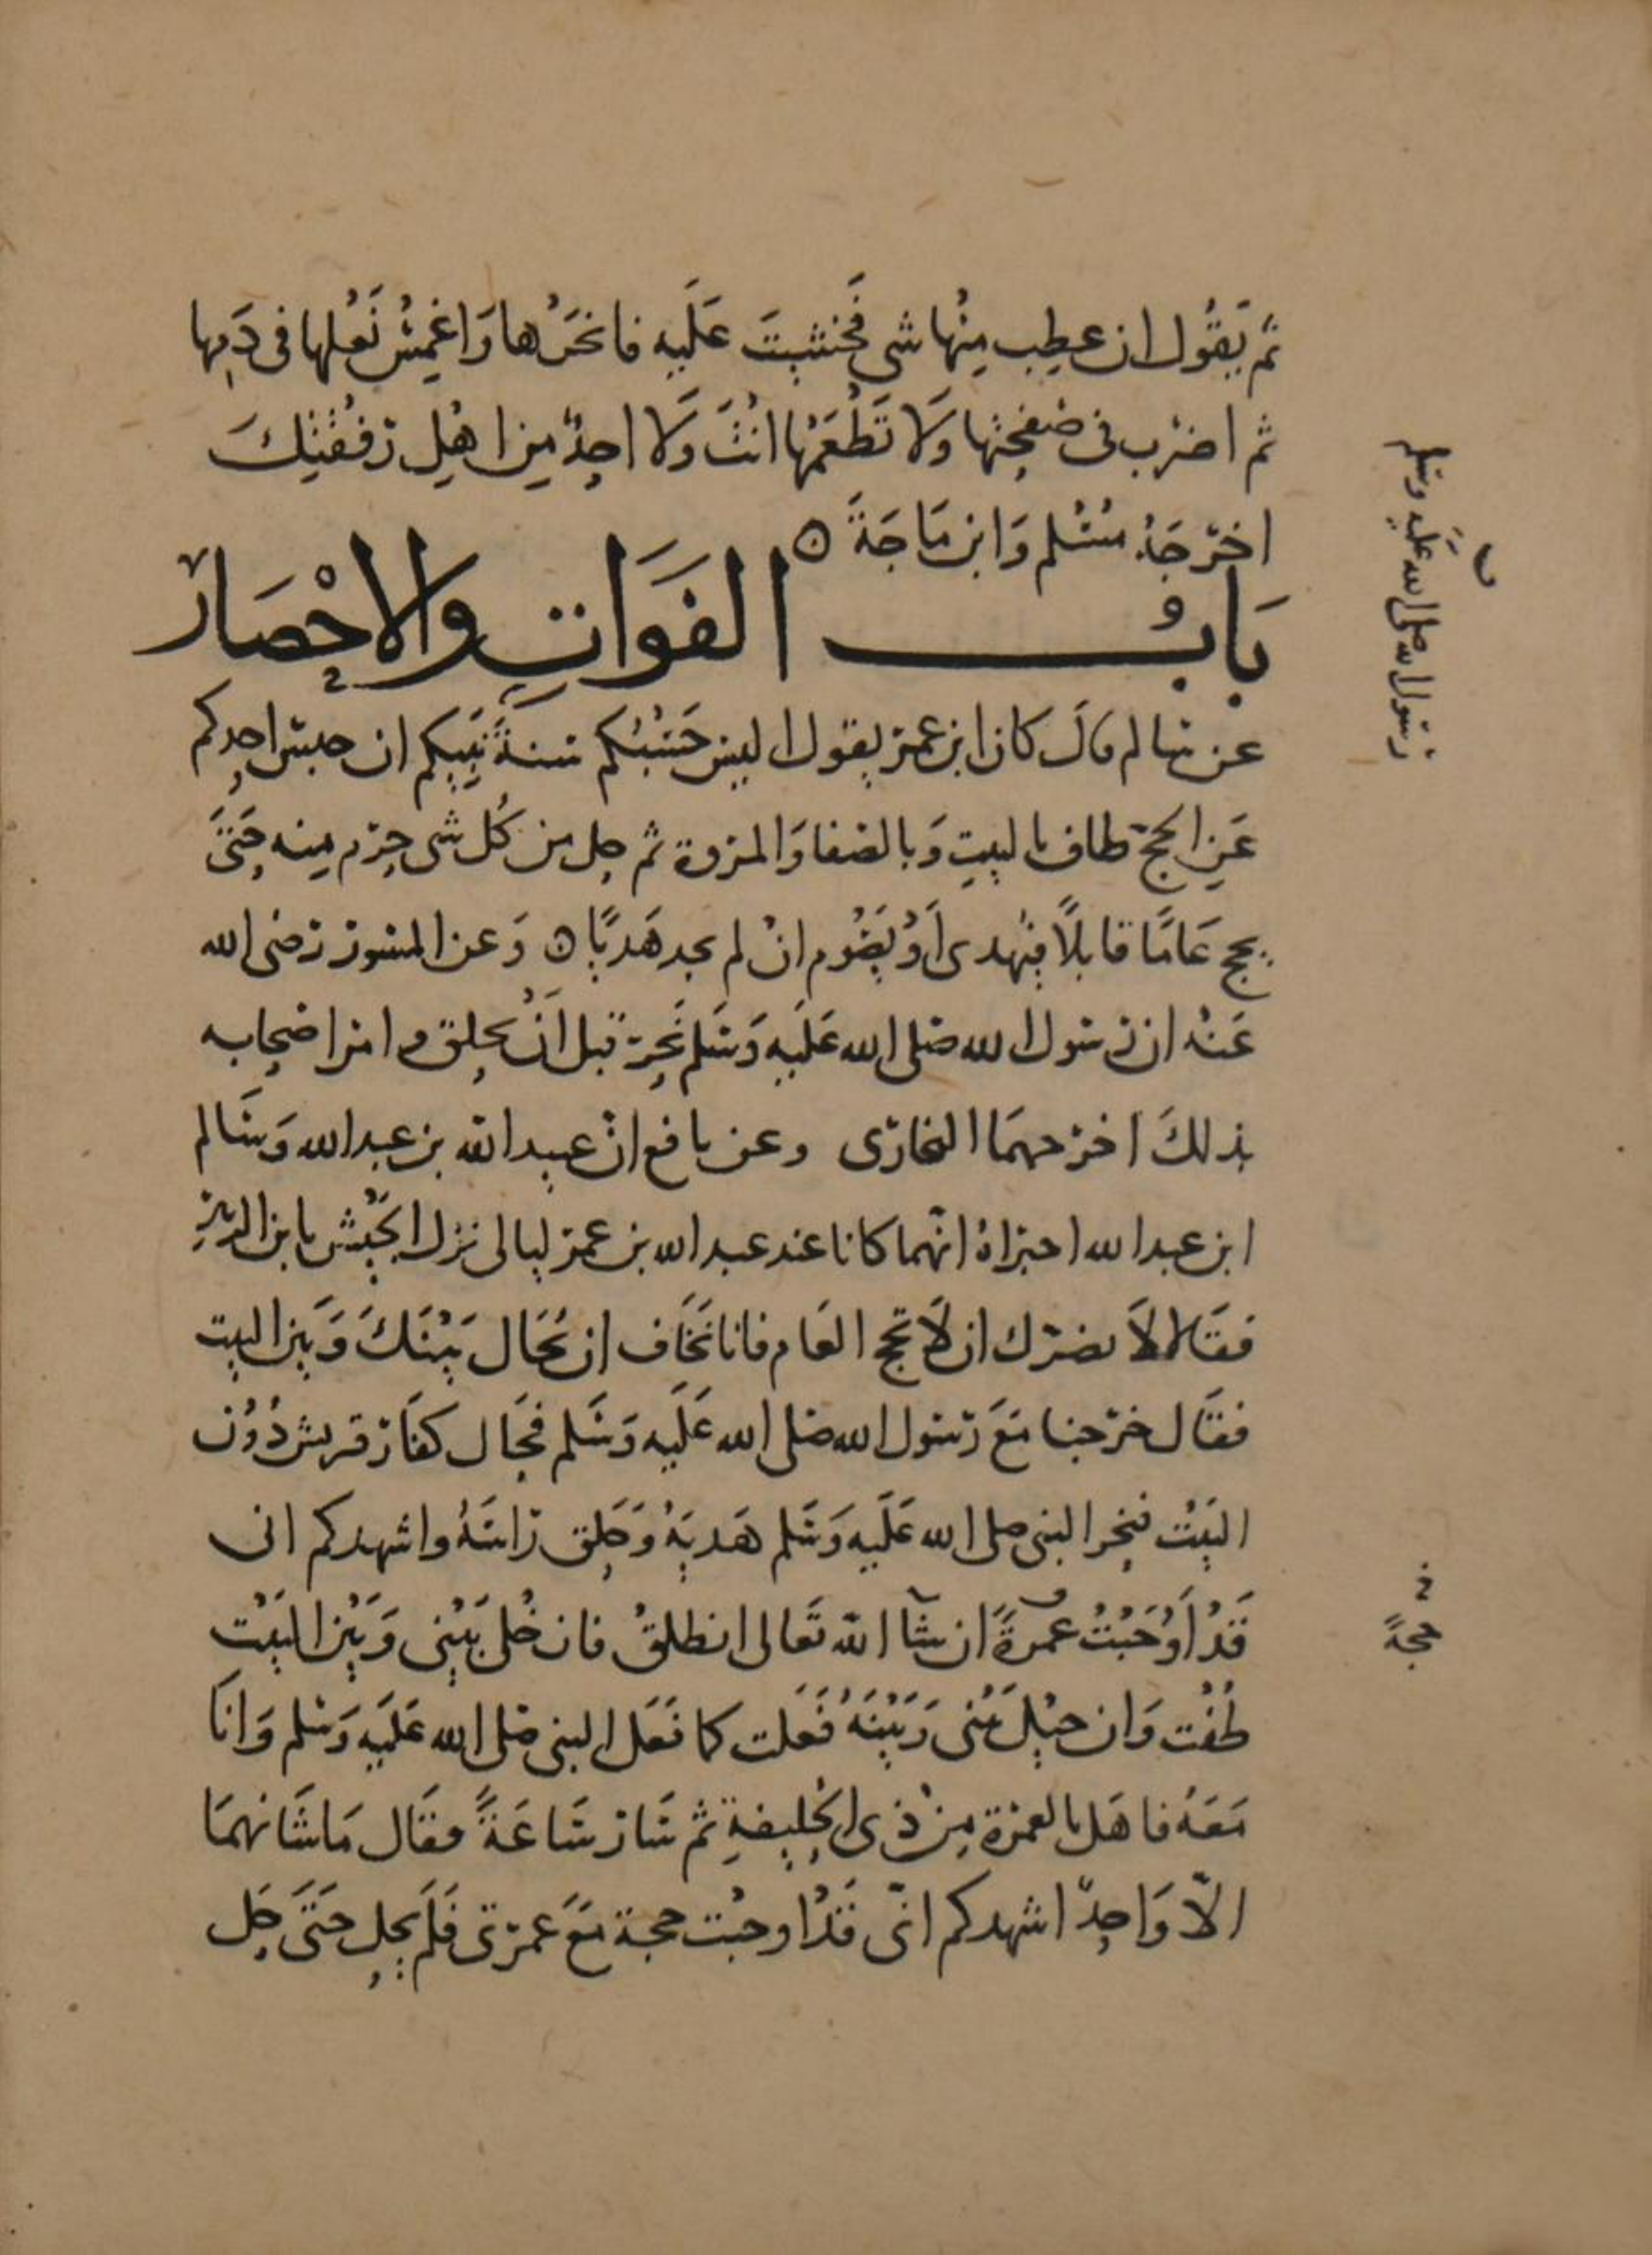 ثم يَقُول ان عطِب مِنْها شى فَخشيتَ عَلَيه فانحَرْها وَاغمِسْ نَعْلها فى دَمِها
ثم اضرب فى صفحتها وَلا تَطْعَمْها انْتَ وَلا احدٌ مِن اهْلِ رفقتِكَ
اخرجَهُ مسْلم وَابن مَاجَةَ ه
بَابُ الفَوَاتِ والاحْصَار
عن سالم قالَ كان ابن عمر يقول اليس حَسْبُكم سنةَ نَبيكم ان حبس احدكم
عَنِ الحج طاف بالبيتِ وَبالصفا وَالمروة ثم حل من كُل شى حرم منه حَتىَّ
يحج عَامًا قابلًا فيُهدى أَوْ يَصُوم انْ لم يجد هَديًا ه وَعن المسور رضى الله
عَنْه ان رسول الله صلى الله عَلَيه وَسَلم نَحَر قبل اَنْ يحلق وامر اصحابه
بذلكَ اخرجهمَا البخارى وعن نافع انّ عبيد الله بن عبد الله وَسَالم
ابن عبد الله اخبراهُ انّهما كانا عند عبد الله بن عمر ليالى نزل الجَيْش بابن الزبير
فقالا لاَ يضرك ان لاَ تحج العَام فانا نَخَاف ان يُحَال بَيْنَكَ وَبَين البيت
فقَال خرجنا مَعَ رَسول الله صلى الله عَلَيه وَسَلم فحَال كفَار قريش دُوْن
البَيْت فنحر النبى صلى الله عَلَيه وَسَلم هَديَهُ وَحَلق رَاسَهُ واشهدكم انى
قَدْ أَوْجَبْتُ عمرةً ان شَآ الله تَعَالى انطلقُ فان خُلى بَيْنِى وَبَيْن البَيْت
طُفْت وَان حيْلَ بَيْنى وَبَيْنَهُ فَعَلت كما فَعَل النبى صَلى الله عَلَيه وَسَلم وَانَا
مَعَهُ فاهَل بالعمرة مِنْ ذى الحُليفةِ ثم سَار سَاعَةً فقَال مَا شَانهمَا
الاّ وَاحدٌ اشهدكم انّى قَدْ اوجبْت حجة مَعَ عمرتى فَلَم يحل حَتَى حَل
رسول الله صلى الله عليه وسلم
حجةً